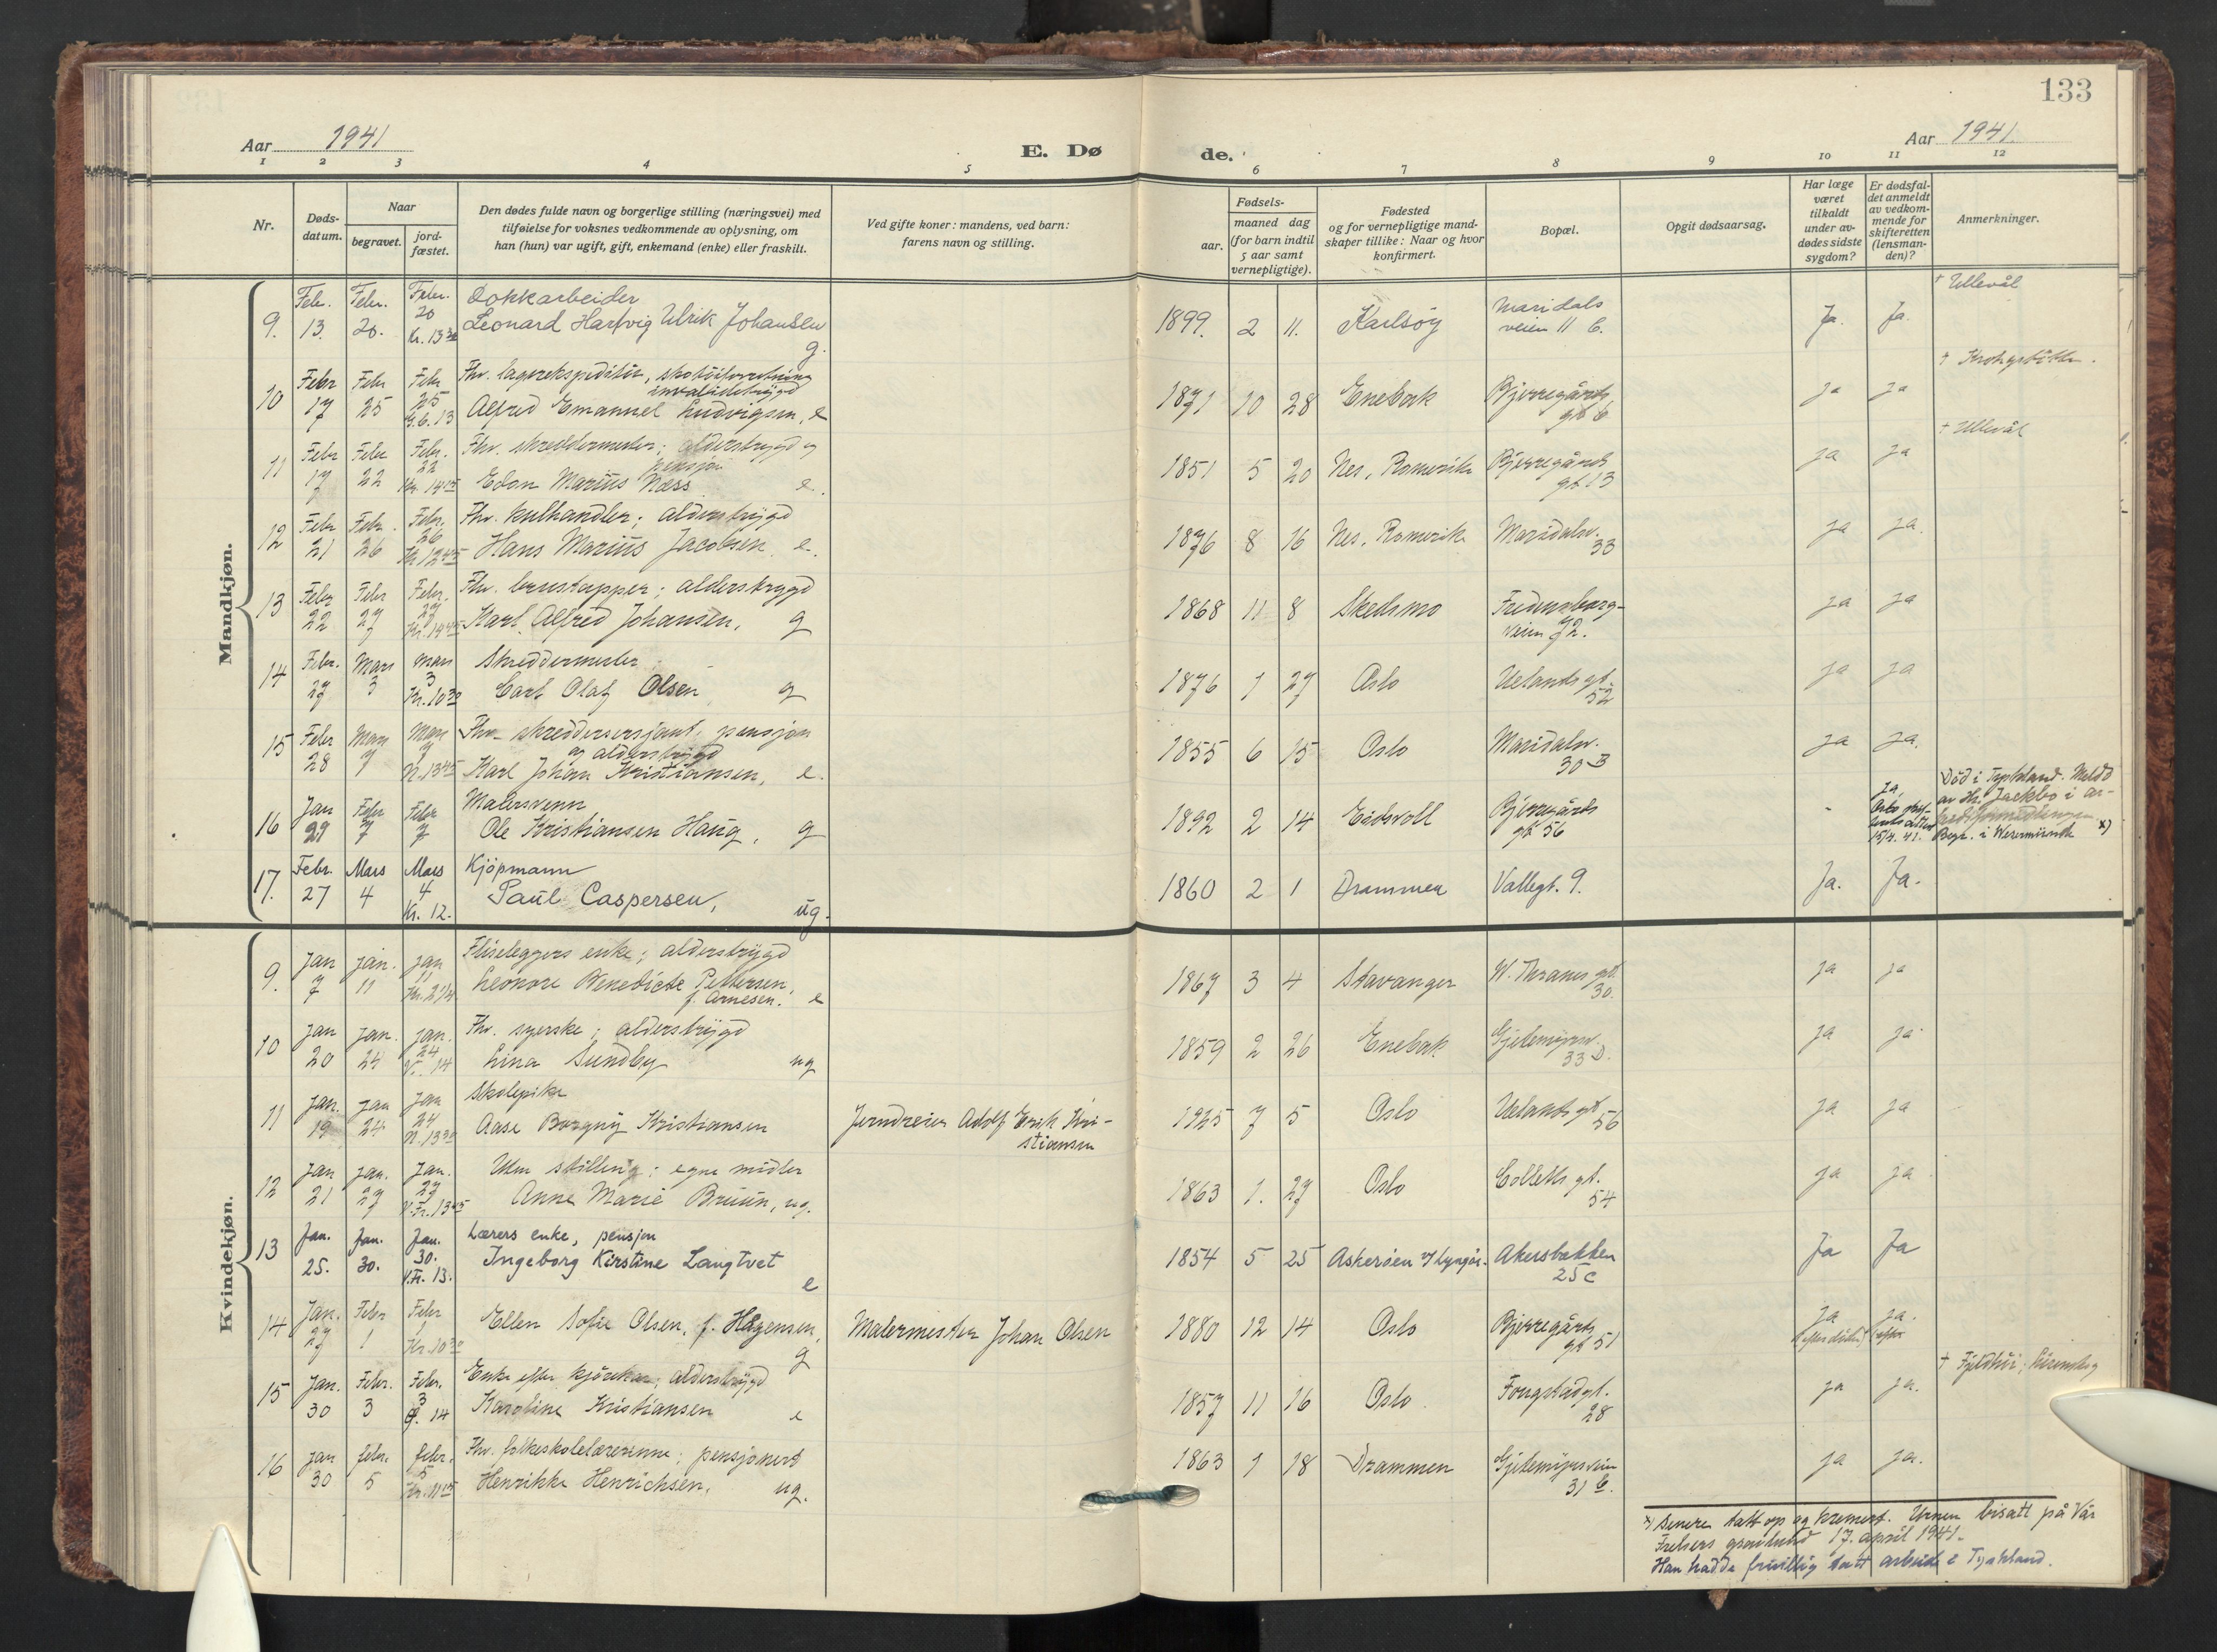 133
Aar 1941
E. Dø
de.
Aar 1941.
1 2 3 4 5 6 7 8 9 10 11 12
Nr.
Døds-
datum.
Naar
begravet.
jord-
fæstet.
Den dødes fulde navn og borgerlige stilling (næringsvei) med
tilføielse for voksnes vedkommende av oplysning, om
han (hun) var ugift, gift, enkemand (enke) eller fraskilt.
Ved gifte koner: mandens, ved barn:
farens navn og stilling.
Fødsels-
aar.
maaned dag
(for barn indtil
5 aar samt
vernepligtige).
Fødested
og for vernepligtige mand-
skaper tillike: Naar og hvor
konfirmert.
Bopæl.
Opgit dødsaarsag.
Har læge
været
tilkaldt
under av-
dødes sidste
sygdom?
Er dødsfal-
det anmeldt
av vedkom-
mende for
skifteretten
(lensman-
den)?
Anmerkninger.
Mandkjøn.
Febr. Febr. Febr. Dokkarbeider † Ullevål
9. 13. 20. 20 Kl. 13 30 Leonard Hartvig Ulrik Johansen g. 1899. 2 11. Karlsöy Maridals
veien 11 b. Ja. Ja.
Febr Febr Febr Fhv. lagerekspeditör, skotöiforretning † Krohgstötten.
invalidetrygd
10 17 25 25 13 Alfred Emanuel Ludvigsen, e 1871 10 28 Enebak Bjerregårds
gt 6 ja ja
Febr Febr Febr. Fhv. skreddermester; alderstrygd og † Ullevål
pensjon
11 17 22 22 Kl. 14 15 Edon Marius Næss e. 1851 5 20 Nes, Romerike Bjerregårds
gt 13 ja ja
Febr Febr. Febr. Fhv. kulhandler; alderstrygd
12 21 26 26 Kl. 12 45 Hans Marius Jacobsen, e. 1876 8 16 Nes, Romerike Maridalsv.
33 ja ja.
Febr Febr Febr. Fhv. brustapper; alderstrygd
13 22 27 27 Kr. 14 45 Karl Alfred Johansen, g 1868 11 8 Skedsmo Fredensborg-
veien 72. ja ja
Febr. Mars mars Skreddermester
14 27 3 3 Kr. 10 30 Carl Olaf Olsen g 1876 1 27 Oslo Uelands gt.
52 ja ja
Febr Mars Mars Fhv. skreddersersjant, pensjon
og alderstrygd
15 28 7 7 N. 13 45 Karl Johan Kristiansen, e. 1855 6 15 Oslo Maridalsv.
30 B ja ja.
Jan Febr Febr Malersvenn
16 29 7 7 Ole Kristiansen Haug, g 1892 2 14 Eidsvoll Bjerregårds
gt 56 - Ja,
15/4. 41. Död i Tyskland. Meldt
av Hr. Jackbo i ar-
beidsformidlingen
Begr. i Wesermünde x)
Febr. Mars Mars Kjöpmann
17. 27 4 4 Kr. 12. Paul Caspersen, ug. 1860 2 1 Drammen Vallegt. 9. Ja. Ja.
Kvindekjøn.
Jan jan. jan Fliseleggers enke; alderstrygd
9. 7 11 11 Leonore Benedicte Pettersen,
f. Arnesen. e 1867 3 4 Stavanger W. Thranes gt.
30. ja ja
Jan Jan. jan. Fhv. syerske; alderstrygd
10 20 24 24 V. 14 Lina Sundby ug 1859 2 26 Enebak Gjetemyrsv.
33 D. ja ja
Jan. jan Jan Skolepike
11 19 24 24 N. 13 30 Aase Borgny Kristiansen Jerndreier Adolf Erik Kri-
stiansen 1925 7 5 Oslo Uelands gt
56 ja ja
Jan jan. Jan. Uten stilling; egne midler
12 21 27 27 V.Fr. 13 45 Anne Marie Bruun, ug. 1863 1. 27 Oslo Colletts gt.
54 ja ja
Jan. Jan. Jan. Lærers enke, pensjon
13 25. 30. 30. V.Fr. 13. Ingeborg Kirstine Langtvet e 1854 5 25 Askeröen v/Lyngör. Akersbakken
25 c Ja Ja
Jan. Febr Febr
14 27 1 1 Kr. 10 30 Ellen Sofie Olsen, f. Hagensen, g Malermester Johan Olsen 1880 12 14 Oslo Bjerregårds
gt 51 ja ja.
Jan. Febr. Febr. Enke efter kjörekar; alderstrygd † Fjeldhöi;
15 30 3 3 14 Karoline Kristiansen e 1857 11 16 Oslo Fougstadgt.
28 ja ja.
Jan febr. febr. Fhv. folkeskolelærerinne; pensjonert
16 30 5 5 Kr. 11 15 Henrikke Henrichsen, ug. 1863 1 18 Drammen Gjetemyrsveien
31 b. ja ja.
x) Senere tatt op og kremert. Urnen bisatt på Vår
Frelsers gravlund 17. april 1941.
Han hadde frivillig tatt arbeide i Tyskland.